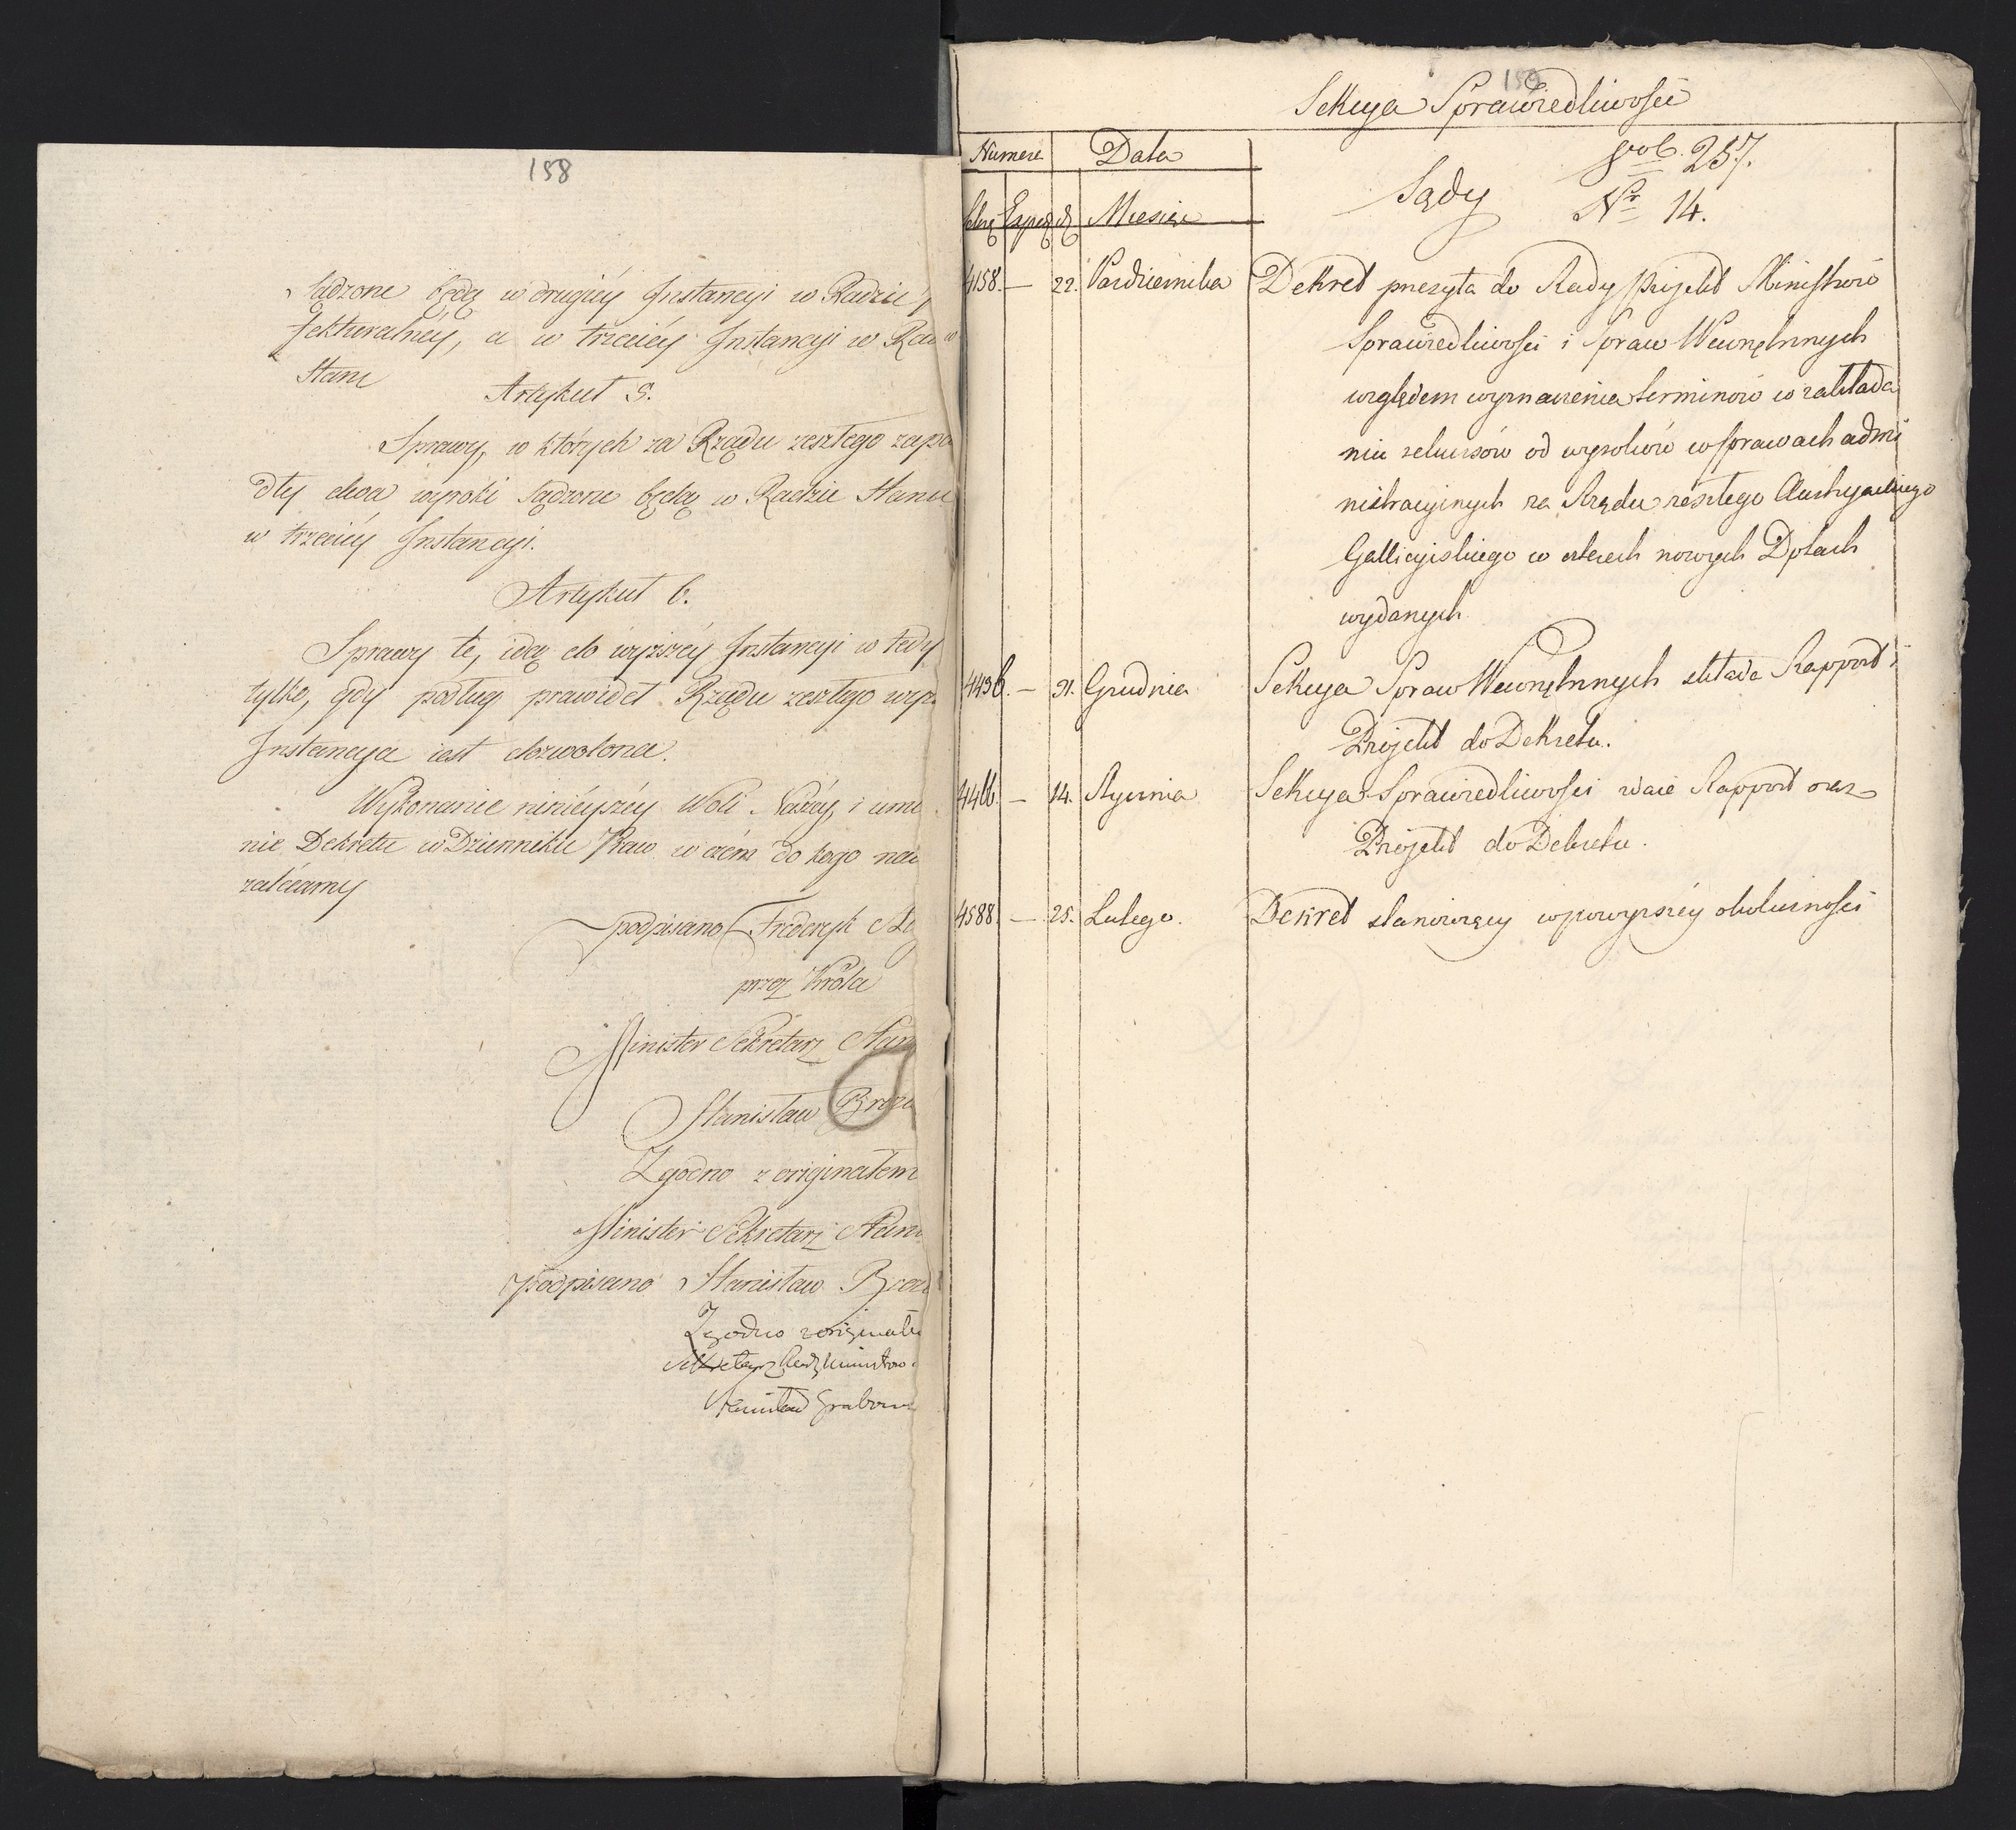 158
sądzone będą w drugiéy Instancyi w Radzie
fekturalney, a w trzeciéy Instancyi w Rad
Stanu
Artykuł 5.
Sprawy, w których za Rządu zeszłego zapa
dły dwa wyroki sądzone będą w Radzie Stanu
w trzeciéy Instancyi.
Artykuł 6.
Sprawy te, idą do wyższéy Instancyi w tedy
tylko, gdy podług prawideł Rządu zeszłego wyż
Instancya iest dozwolona.
Wykonanie ninieyszéy Woli Naszéy, i umie
nie Dekretu w Dzienniku Praw w czém do kogo nal
zalécamy
podpisano Frederyk
przez Króla
Minister Sekretarz Stan
Stanisław Brez
Zgodno z originałem
Minister Sekretarz Stanu
podpisano Stanisław Brez
Zgodno z originałe
Sekretarz Rady Ministrow
Stanisław Grabow
159
Sekcya Sprawiedliwości
Numera Data
Sądy vol. 257.
Nr 14.
Exped d Miesiąc
4158. — 22. Pazdziernika Dekret przesyła do Rady projekt Ministrów
Sprawiedliwości i Spraw Wewnętrznych
względem wyznaczenia terminów w zakłada
niu rekursów od wyroków w sprawach admi
nistracyjnych za Rządu zeszłego Austryackiego
Gallicyjskiego w czterech nowych Dptach
wydanych
4436. — 31. Grudnia Sekcya Spraw Wewnętrznych składa Rapport i
Projekt do Dekretu.
4466. — 14. Stycznia Sekcya Sprawiedliwości zdaie Rapport oraz
Projekt do Dekretu.
4588. — 25. Lutego. Dekret stanowiący w powyższéy okoliczności